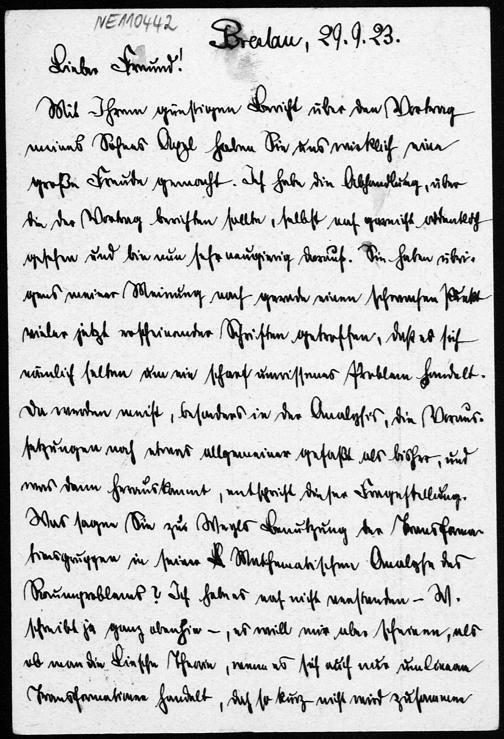 NE110442
Breslau, 29.9.23.
Lieber Freund!
Mit Ihrem günstigen Bericht über den Vortrag
meines Sohnes Axel haben Sie uns wirklich eine
große Freude gemacht. Ich habe die Abhandlung, über
die der Vortrag berichten sollte, selbst noch gar nicht ordentlich
gesehen und bin nun sehr neugierig darauf. Sie haben übri-
gens meiner Meinung nach gerade einen schwachen Punkt
vieler jetzt erscheinender Schriften getroffen, daß es sich
nämlich selten um ein scharf umrissenes Problem handelt.
Da werden meist, besonders in der Analysis, die Voraus-
setzungen noch etwas allgemeiner gefaßt als bisher, und
was dann herauskommt, entspricht dieser Fragestellung.
Was sagen Sie zur Weyls Benutzung der Transforma-
tionsgruppen in seiner Mathematischen Analyse des
Raumproblems? Ich habe es noch nicht verstanden – W.
schreibt ja ganz obenhin –, es will mir aber scheinen, als
ob man die Liesche Theorie, wenn es sich auch nur um lineare
Transformationen handelt, doch so kurz nicht wird zusammen